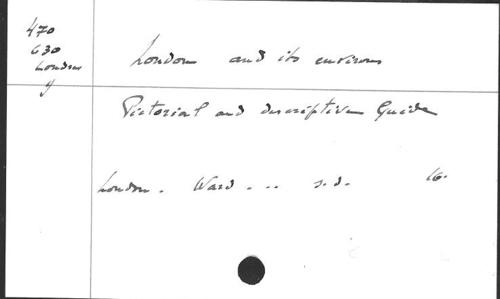 470
630
London
9
London and its environs
Pictorial and descriptive Guide
London. Ward ... s.d. 16.